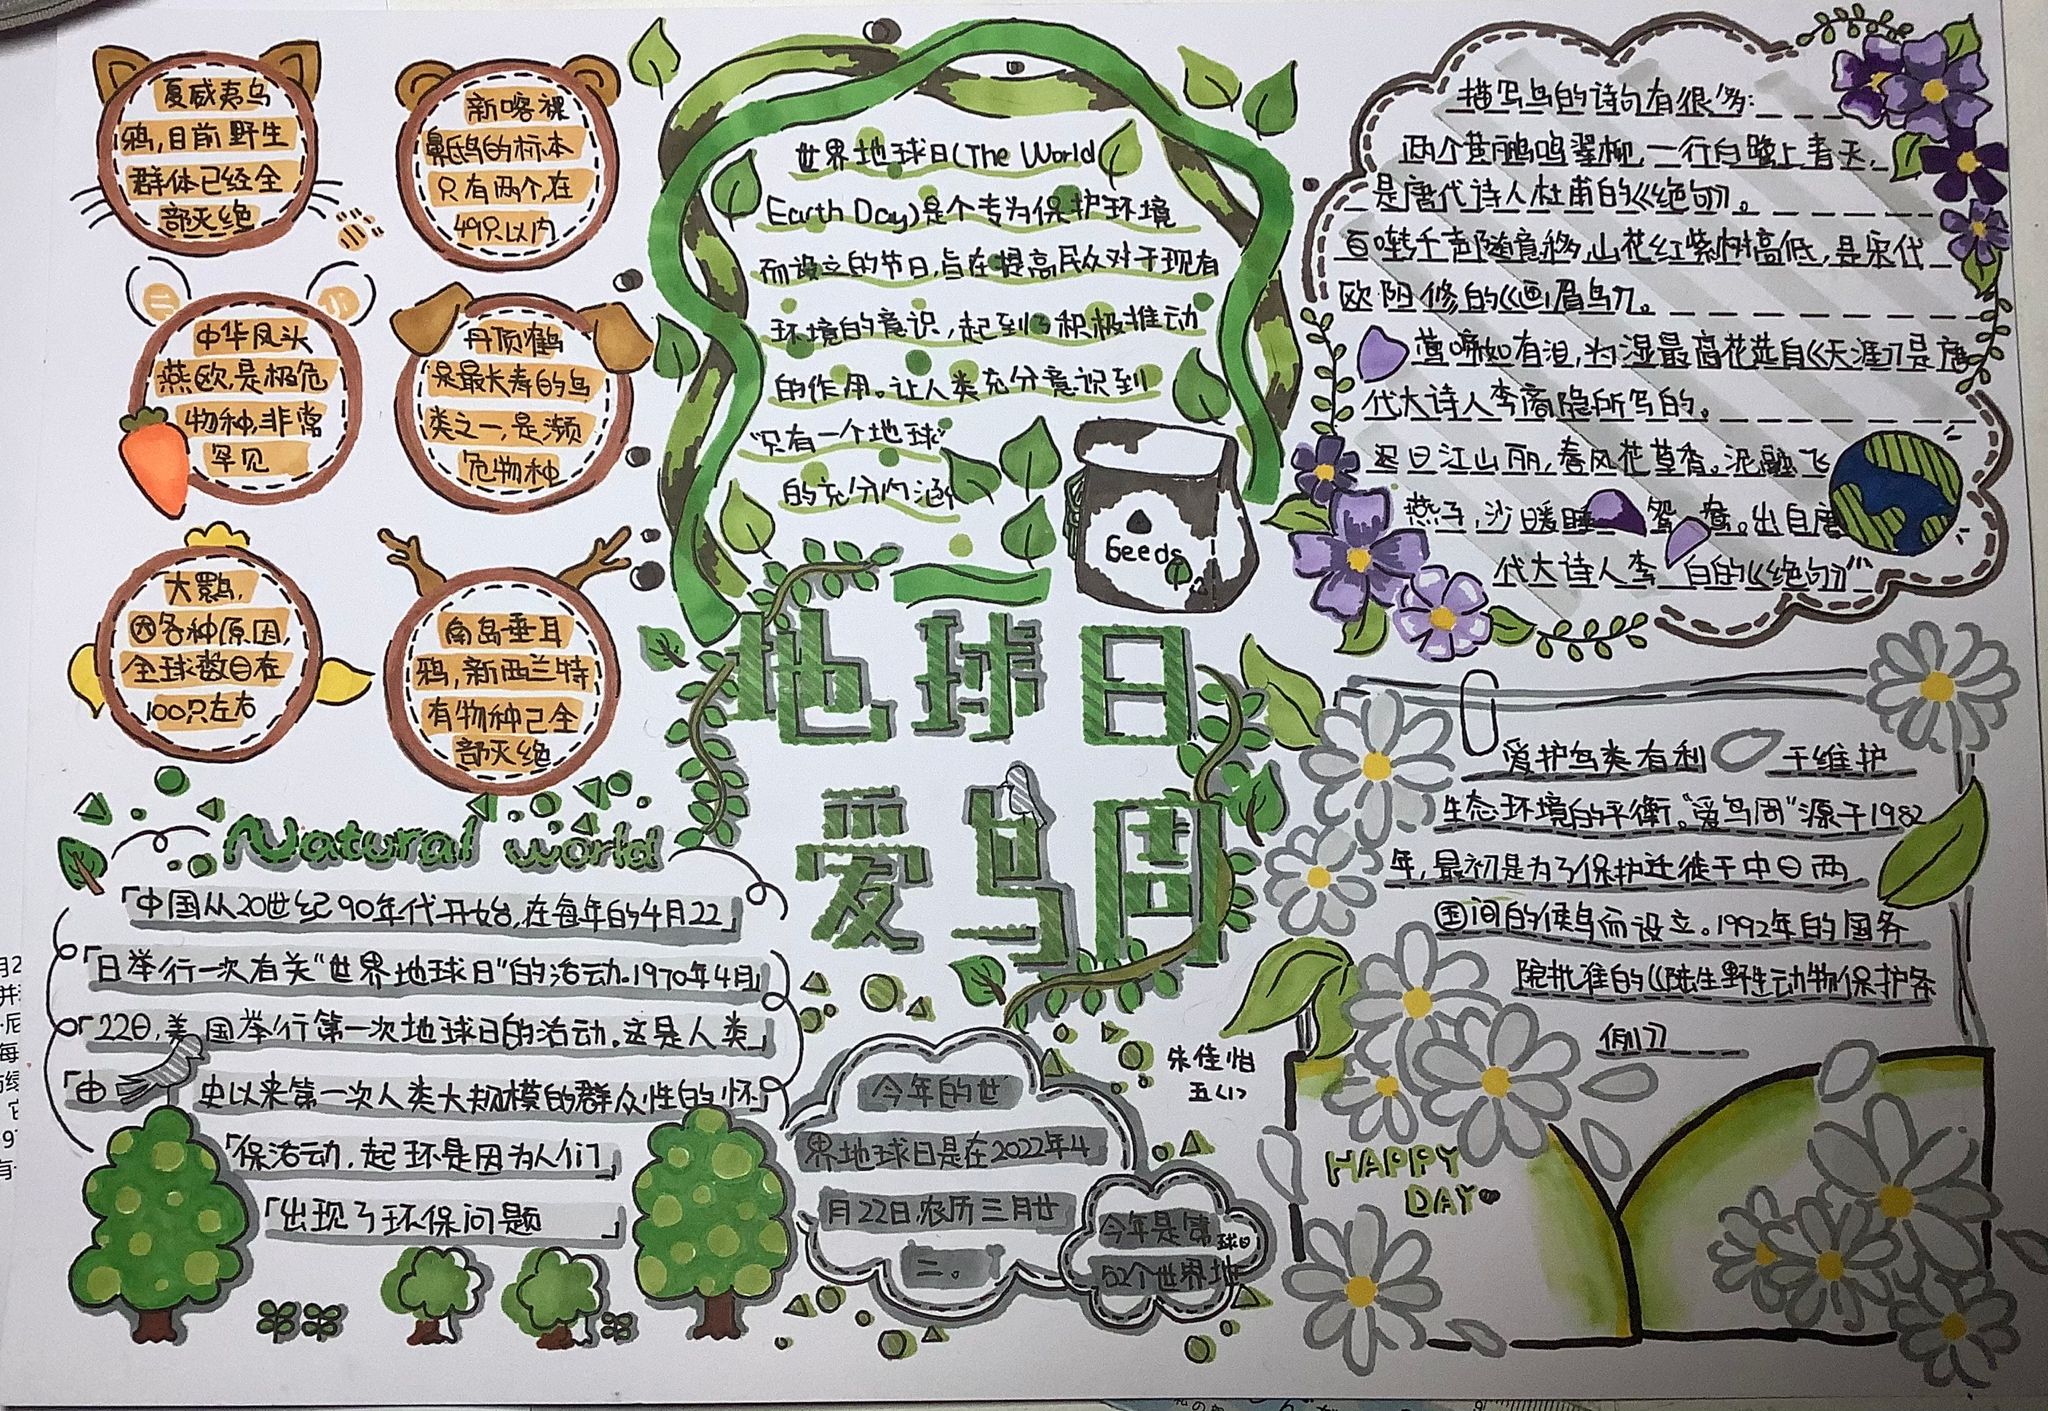 夏威夷乌
鸦,目前野生
群体已经全
部灭绝
新喀裸
鼻鸱的标本
只有两个,在
49只以内
中华凤头
燕欧,是极危
物种,非常
罕见
丹顶鹤
是最长寿的鸟
类之一,是濒
危物种
大鹮,
因各种原因,
全球数目在
100只左右
南岛垂耳
鸦,新西兰特
有物种已全
部灭绝
世界地球日(The World
Earth Day)是个专为保护环境
而设立的节日,旨在提高民众对于现有
环境的意识,起到了积极推动
的作用。让人类充分意识到
“只有一个地球”
的充分内涵
Seeds
地球日
爱鸟周
描写鸟的诗句有很多:
两个黄鹂鸣翠柳,一行白鹭上青天,
是唐代诗人杜甫的《绝句》。
百啭千声随意移,山花红紫树高低,是宋代
欧阳修的《画眉鸟》。
莺啼如有泪,为湿最高花选自《天涯》是唐
代大诗人李商隐所写的。
迟日江山丽,春风花草香。泥融飞
燕子,沙暖睡鸳鸯。出自唐
代大诗人李白的《绝句》”
Natural world
「中国从20世纪90年代开始,在每年的4月22」
「日举行一次有关“世界地球日”的活动。1970年4月」
「22日,美国举行第一次地球日的活动。这是人类」
「由 史以来第一次人类大规模的群众性的怀」
「保活动,起环是因为人们」
「出现了环保问题 」
爱护鸟类有利于维护
生态环境的平衡。“爱鸟周”源于1982
年,最初是为了保护迁徙于中日两
国间的候鸟而设立。1992年的国务
院批准的《陆生野生动物保护条
例》
朱佳怡
五(1)
今年的世
界地球日是在2022年4
月22日,农历三月廿
二。
今年是第
52个世界地
球日
HAPPY
DAY